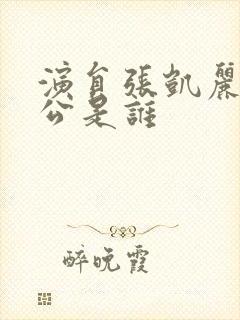 演員張凱麗
公是誰
醉晚霞